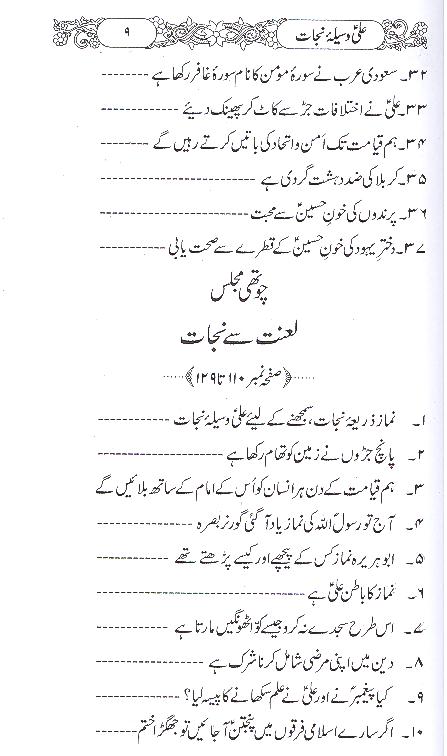 علیؑ وسیلۂ نجات
۹
۳۲۔ سعودی عرب نے سورۂ مومن کا نام سورۂ غافر رکھا ہے
۳۳۔ علیؑ نے اختلافات جڑ سے کاٹ کر پھینک دیئے
۳۴۔ ہم قیامت تک اَمن و اتحاد کی باتیں کرتے رہیں گے
۳۵۔ کربلا کی ضد دہشت گردی ہے
۳۶۔ پرندوں کی خونِ حسینؑ سے محبت
۳۷۔ دخترِ یہود کی خونِ حسینؑ کے قطرے سے صحت یابی
چوتھی مجلس
لعنت سے نجات
﴿صفحہ نمبر ۱۱۰ تا ۱۲۹﴾
۱۔ نماز ذریعۂ نجات، سمجھنے کے لیئے علیؑ وسیلۂ نجات
۲۔ پانچ جڑوں نے زمین کو تھام رکھا ہے
۳۔ ہم قیامت کے دن ہر انسان کو اُس کے امام کے ساتھ بلائیں گے
۴۔ آج تو رسولؐ اللہ کی نماز یاد آ گئی گورنر بصرہ
۵۔ ابو ہریرہ نماز کس کے پیچھے اور کیسے پڑھتے تھے
۶۔ نماز کا باطن علیؑ ہے
۷۔ اس طرح سجدے نہ کرو جیسے کوّا ٹھونگیں مارتا ہے
۸۔ دین میں اپنی مرضی شامل کرنا شرک ہے
۹۔ کیا پیغمبرؐ نے اور علیؑ نے علم سکھانے کا پیسہ لیا؟
۱۰۔ اگر سارے اسلامی فرقوں میں پنجتنؑ آ جائیں تو جھگڑا ختم